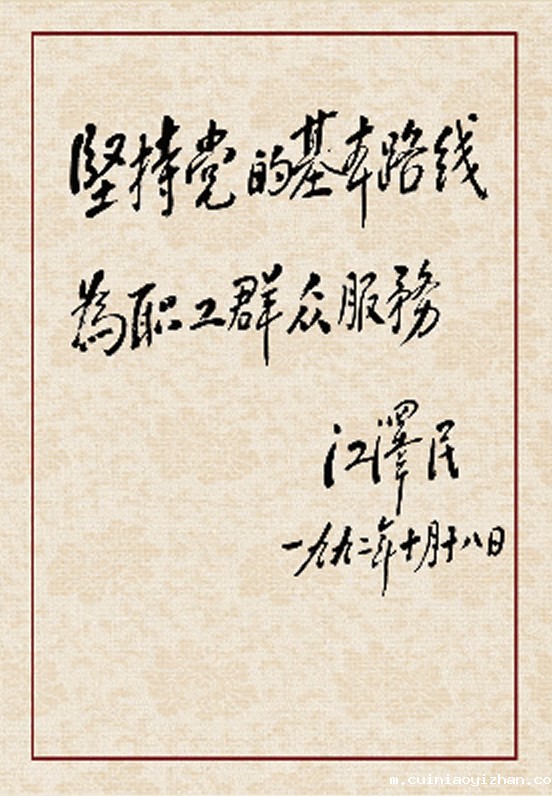 堅持党的基本路线
為职工群众服務
江澤民
一九九二年十月十八日
m.cuiniaoyizhan.co